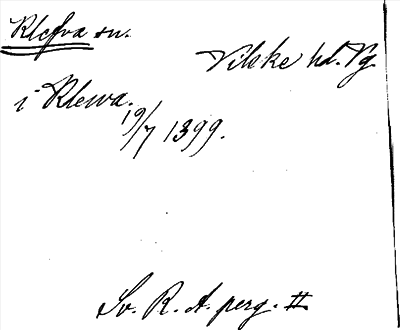 Klefva sn.
Vilske hd. Vg.
i Klewa.
19/7 1399.
Sv. R. A. perg. II